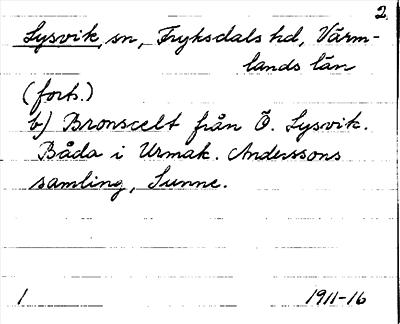 2.
Lysvik, sn, Fryksdals hd, Värm-
lands län
(forts.)
b) Bronscelt från Ö. Lysvik.
Båda i Urmak. Anderssons
samling, Sunne.
1 1911-16